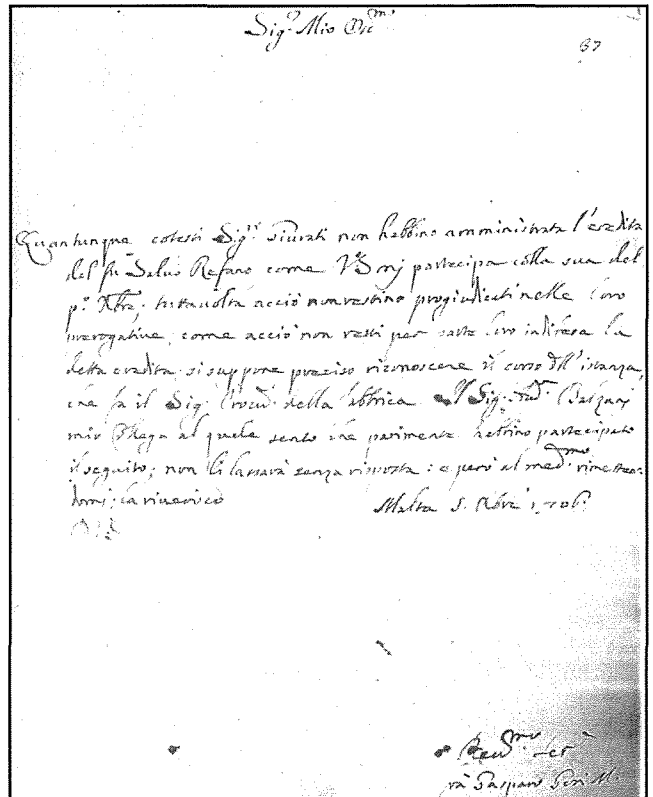 Sig.r Mio Oss.mo
87
Quantunque cotesti Sig.ri Giurati non habbino amministrata l'eredità
del fù Salvo Refano come VS mi partecipa colla sua del
p.o Xbre; tuttavolta acciò non restino progiudicati nelle loro
prerogative, come acciò non resti per parte loro indifesa la
detta eredità si suppone preciso riconoscere il corso dell'istanza,
che fa il Sig.r della fabbrica. Il Sig.r Balzani
mio Collega al quale sento che parimente habbino partecipato
il seguito, non li lassarà senza risposta: e però al med.mo rimetten=
domi, la riverisco Malta 5. Xbre 1706.